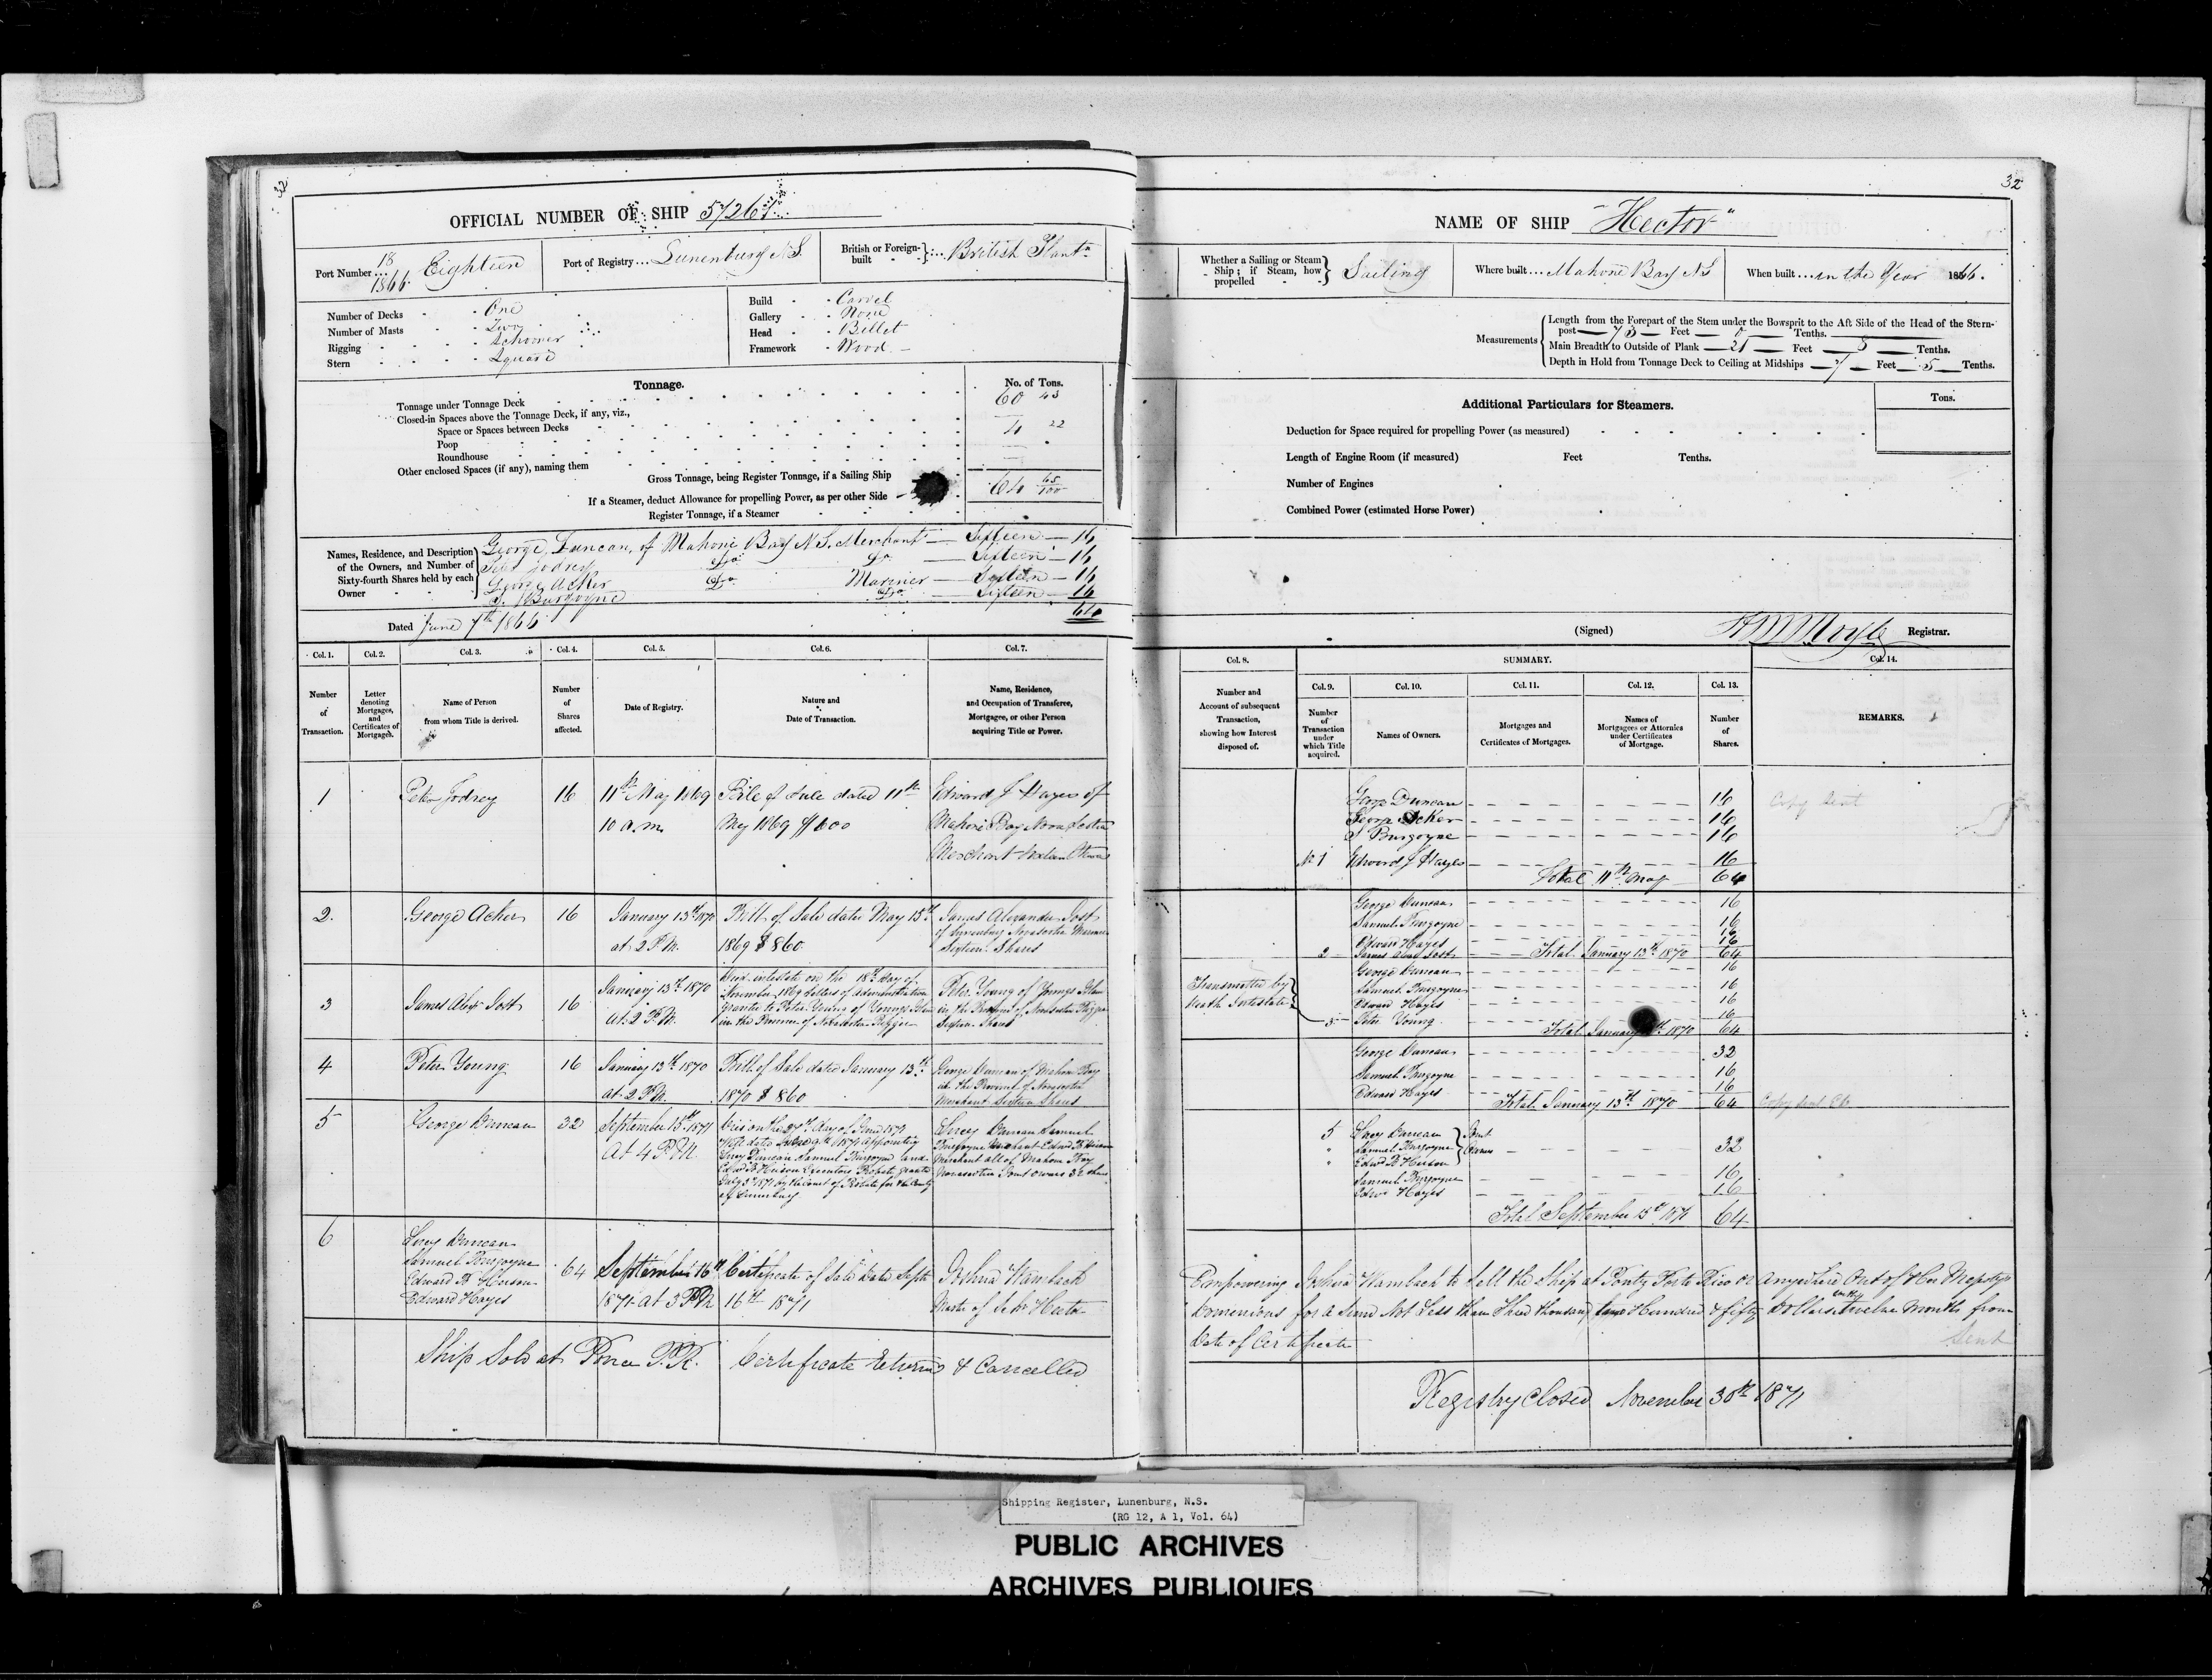 32
OFFICIAL NUMBER OF SHIP 57267
Port Number 18/1866 Eighteen
Port of Registry Lunenburg N.S.
British or Foreign-built British Plantn
Number of Decks One
Number of Masts Two
Rigging Schooner
Stern Square
Build Carvel
Gallery None
Head Billet
Framework Wood
Tonnage.
No. of Tons.
Tonnage under Tonnage Deck 60 43
Closed-in Spaces above the Tonnage Deck, if any, viz.,
Space or Spaces between Decks 4 22
Poop
Roundhouse
Other enclosed Spaces (if any), naming them
Gross Tonnage, being Register Tonnage, if a Sailing Ship 64 65/100
If a Steamer, deduct Allowance for propelling Power, as per other Side
Register Tonnage, if a Steamer
Names, Residence, and Description of the Owners, and Number of Sixty-fourth Shares held by each Owner
George Duncan, of Mahone Bay N.S. Merchant Sixteen 16
Peter Jodrey Do Do Sixteen 16
George Acker Do Mariner Sixteen 16
S. Burgoyne Do Sixteen 16
64
Dated June 7th 1866
Col. 1. Number of Transaction.
Col. 2. Letter denoting Mortgages, and Certificates of Mortgage.
Col. 3. Name of Person from whom Title is derived.
Col. 4. Number of Shares affected.
Col. 5. Date of Registry.
Col. 6. Nature and Date of Transaction.
Col. 7. Name, Residence, and Occupation of Transferee, Mortgagee, or other Person acquiring Title or Power.
1 Peter Jodrey 16 11th May 1869 Bill of Sale dated 11th Edward J Hayes of
10 a.m. May 1869 $600 Mahone Bay Nova Scotia
Merchant Sixteen Shares
2. George Acker 16 January 13th 1870 Bill of Sale dated May 15th James Alexander Jost
at 2 P.M. 1869 $860 of Lunenburg Nova Scotia Mariner
Sixteen Shares
3 James Alexr Jost 16 January 13th 1870
at 2 P.M.
Died intestate on the 18th day of
November 1869 Letters of Administration
granted to Peter Young of Youngs Island
in the Province of Nova Scotia Rigger
Peter Young of Youngs Island
in the Province of Nova Scotia Rigger
Sixteen Shares
4 Peter Young 16 January 13th 1870 Bill of Sale dated January 13th
at 2 P.M. 1870 $860
George Duncan of Mahone Bay
in the Province of Nova Scotia
Merchant Sixteen Shares
5 George Duncan 32 September 15th 1871
At 4 P.M.
Died on the 27th day of June 1871
Will dated June 9th 1871 appointing
Lucy Duncan Samuel Burgoyne and
Edwd B Heison Executors Probate granted
July 3d 1871 by the Court of Probate for the County
of Lunenburg
Lucy Duncan Samuel
Burgoyne Merchant Edwd B Heison
Merchant all of Mahone Bay
Nova Scotia Joint Owners 32 Shares
6 Lucy Duncan
Samuel Burgoyne
Edward B Heison
Edward Hayes
64 September 16th Certificate of Sale Dated Septr Joshua Wambach
1871 at 3 PM 16th 1871 Master of Schr Hector
Ship Sold at Ponce P.R. Certificate returned & Cancelled
32
NAME OF SHIP "Hector"
Whether a Sailing or Steam Ship; if Steam, how propelled Sailing
Where built Mahone Bay NS
When built in the Year 1866.
Measurements
Length from the Forepart of the Stem under the Bowsprit to the Aft Side of the Head of the Stern-
post 73 Feet 0 Tenths.
Main Breadth to Outside of Plank 21 Feet 8 Tenths.
Depth in Hold from Tonnage Deck to Ceiling at Midships 7 Feet 5 Tenths.
Additional Particulars for Steamers.
Tons.
Deduction for Space required for propelling Power (as measured)
Length of Engine Room (if measured) Feet Tenths.
Number of Engines
Combined Power (estimated Horse Power)
(Signed) Registrar.
Col. 8. Number and Account of subsequent Transaction, showing how Interest disposed of.
SUMMARY.
Col. 9. Number of Transaction under which Title acquired.
Col. 10. Names of Owners.
Col. 11. Mortgages and Certificates of Mortgages.
Col. 12. Names of Mortgagees or Attornies under Certificates of Mortgage.
Col. 13. Number of Shares.
Col. 14. REMARKS.
George Duncan 16 Copy Sent
George Acker 16
S Burgoyne 16
No 1 Edward J Hayes 16
Total 11th May 64
George Duncan 16
Samuel Burgoyne 16
Edward Hayes 16
2 James Alexr Jost 16
Total January 13th 1870 64
Transmitted by
Death Intestate
George Duncan 16
Samuel Burgoyne 16
Edward Hayes 16
3 Peter Young 16
Total January 1870 64
George Duncan 32
Samuel Burgoyne 16
Edward Hayes 16
Total January 13th 1870 64 Copy Sent
5 Lucy Duncan
" Samuel Burgoyne
" Edwd B Heison
Joint Owners 32
Samuel Burgoyne 16
Edwd Hayes 16
Total September 15th 1871 64
Empowering Joshua Wambach to Sell the Ship at Porto Rico or anywhere Out of Her Majestys
Dominions for a Sum Not Less than Three thousand Hundred & fifty Dollars within twelve Months from
Date of Certificate
Sent
Registry Closed November 30th 1871
Shipping Register, Lunenburg, N.S.
(RG 12, A 1, Vol. 64)
PUBLIC ARCHIVES
ARCHIVES PUBLIQUES